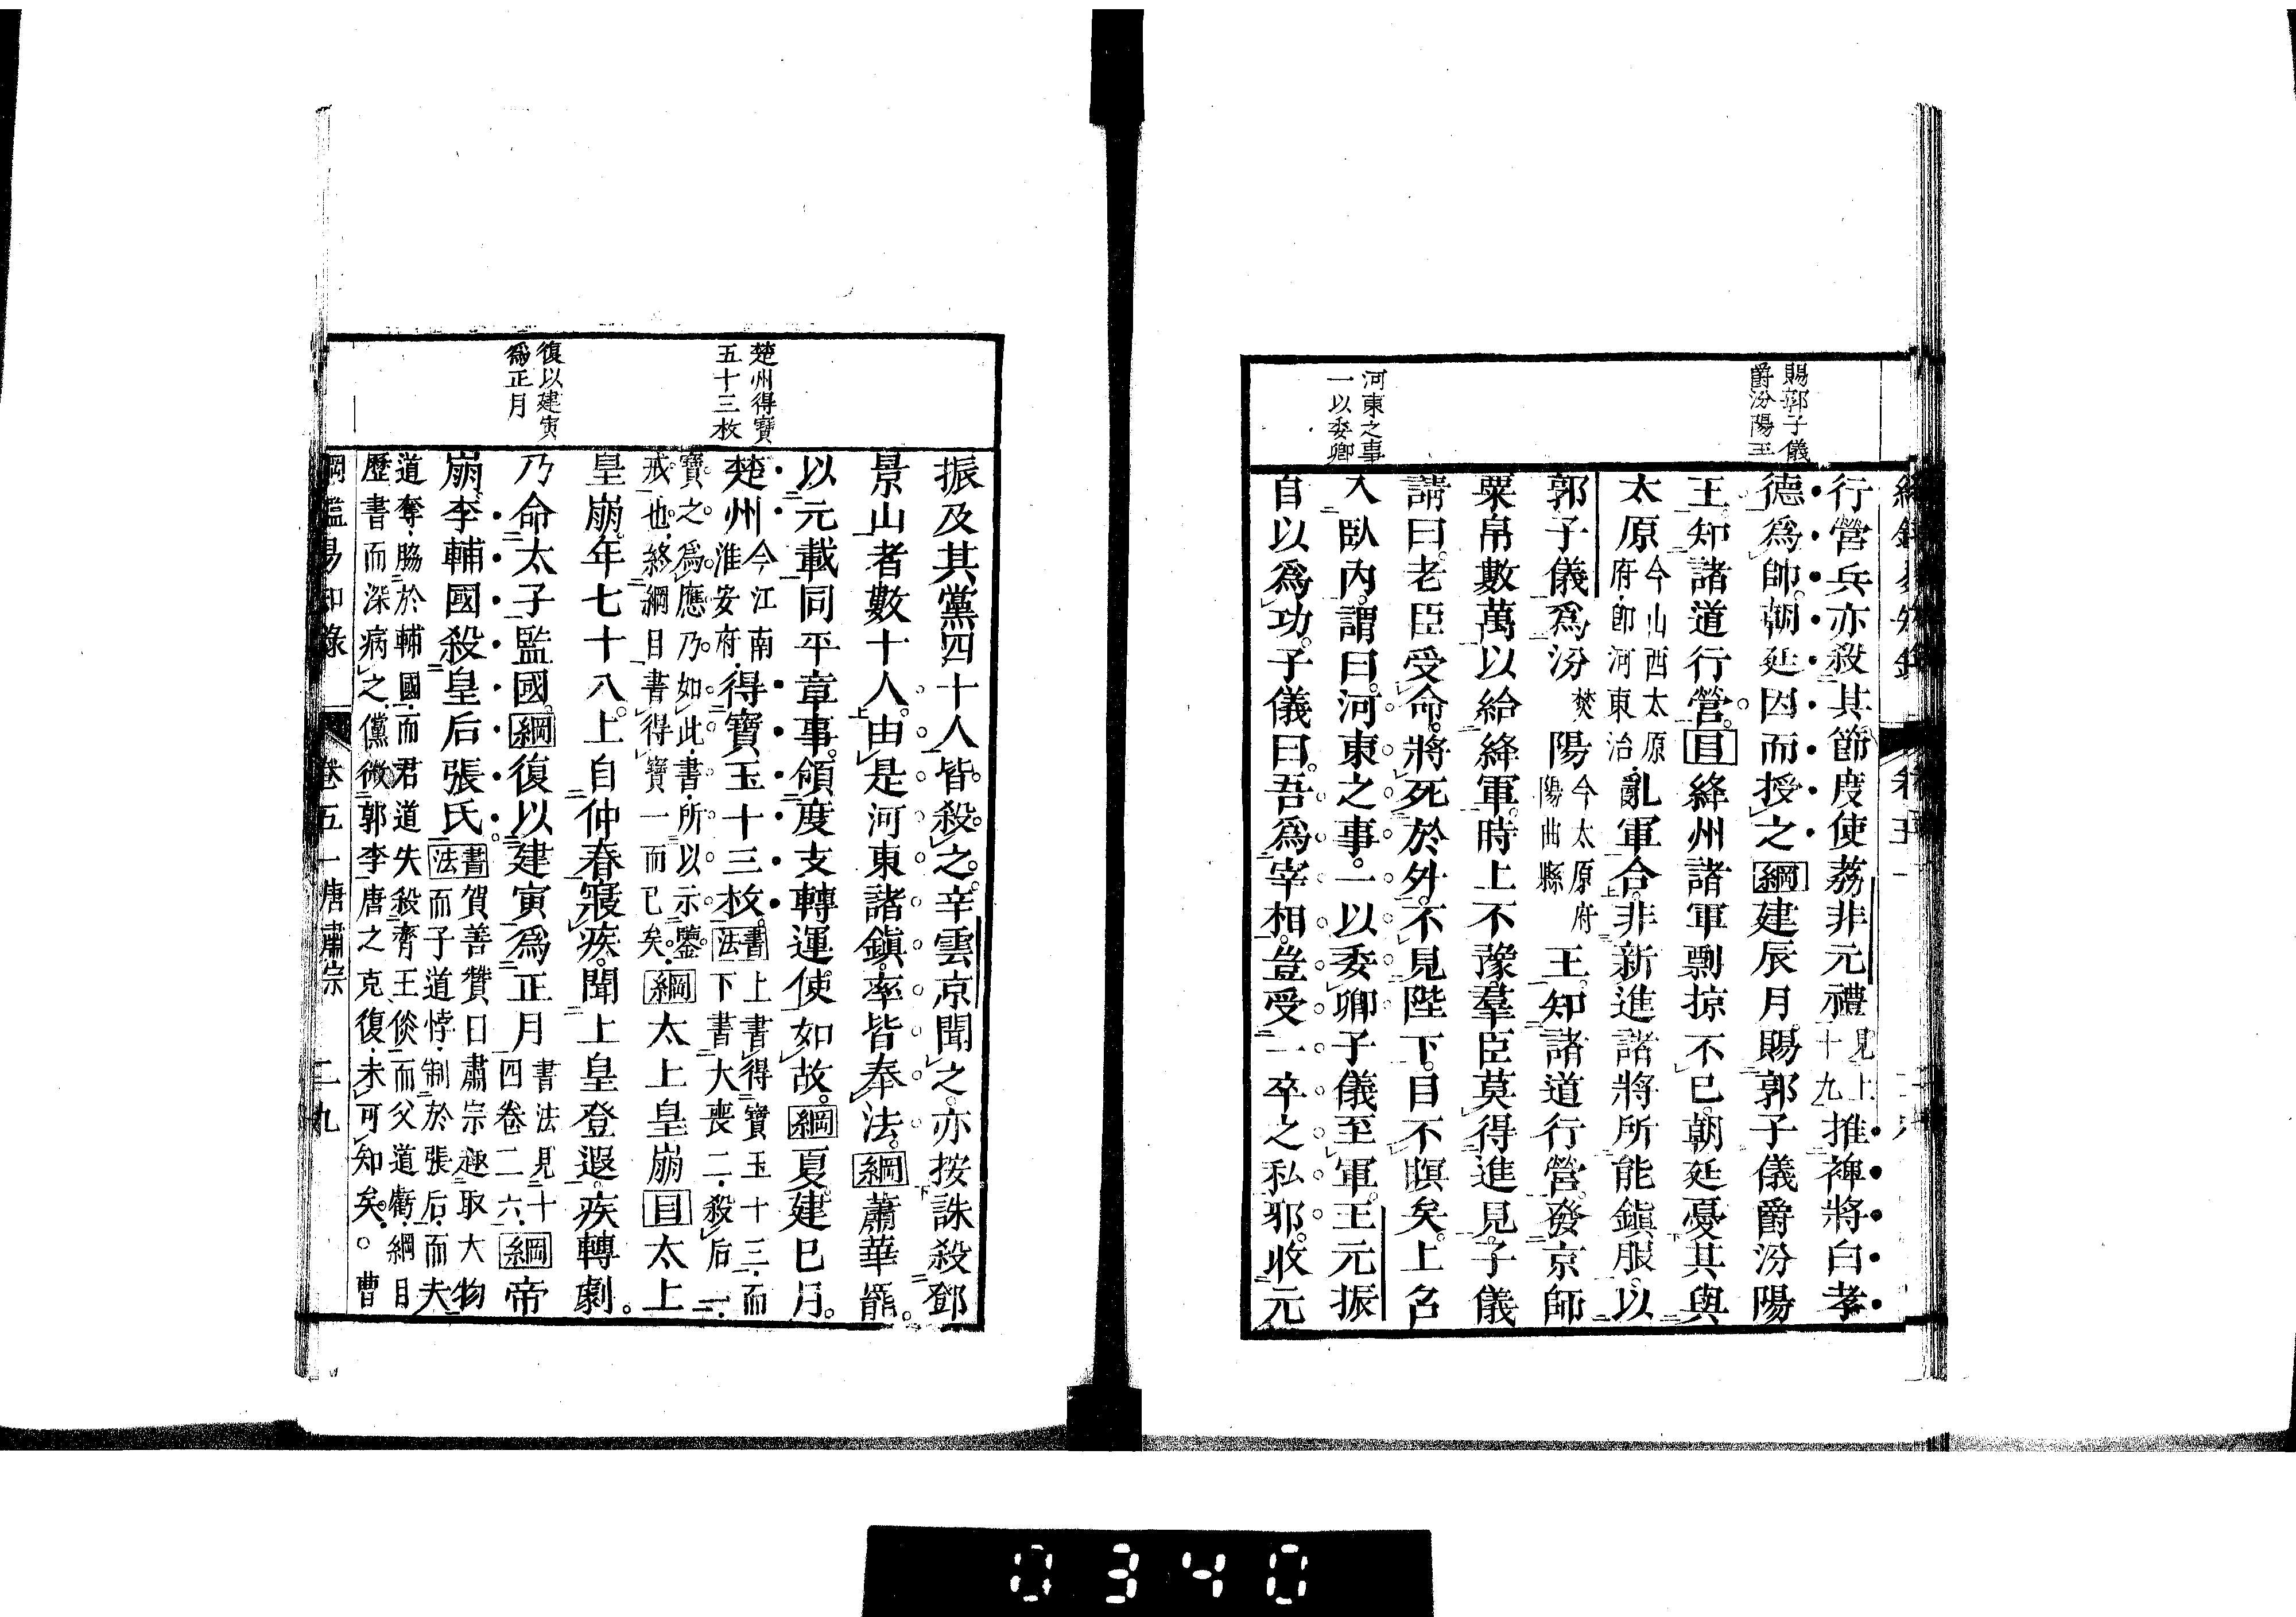 賜郭子儀
爵汾陽王
河東之事
一以委卿
行營兵亦殺其節度使荔非元禮見上十九推裨將白孝
德爲帥。朝廷因而授之綱建辰月。賜郭子儀爵汾陽
王。知諸道行營。目絳州諸軍剽掠不已。朝廷憂其與
太原今山西太原府、卽河東治、亂軍合。非新進諸將所能鎮服。以
郭子儀爲汾焚陽今太原府陽曲縣王。知諸道行營。發京師
粟帛數萬以給絳軍。時上不豫。羣臣莫得進見。子儀
請曰。老臣受命。將死於外。不見陛下。目不瞑矣。上召
入臥內。謂曰。河東之事。一以委卿子儀至軍。王元振
自以爲功。子儀曰。吾爲宰相。豈受一卒之私邪。收元
楚州得寶
五十三枚
復以建寅
爲正月
振及其黨四十人。皆殺之。辛雲京聞之。亦按誅殺鄧
景山者數十人。由是河東諸鎮。率皆奉法。綱蕭華罷。
以元載同平章事。領度支轉運使如故。綱夏建巳月。
楚州今江南淮安府、得寶玉十三枚。書法上書得寶玉十三、而下書大喪二、殺后一、
寶之爲應乃如此、書所以示鑒戒也、終綱目書得寶一而已矣。綱太上皇崩目太上
皇崩。年七十八。上自仲春寢疾。聞上皇登遐。疾轉劇。
乃命太子監國。綱復以建寅爲正月書法見十四卷二六、綱帝
崩。李輔國殺皇后張氏。書法賀善贊曰肅宗趣取大物而子道悖、制於張后、而夫
道奪、脇於輔國、而君道失、殺齊王倓、而父道虧、綱目
歷書而深病之、儻微郭李唐之克復、未可知矣。○曹
綱鑑易知錄　卷五一唐肅宗　二九
0340